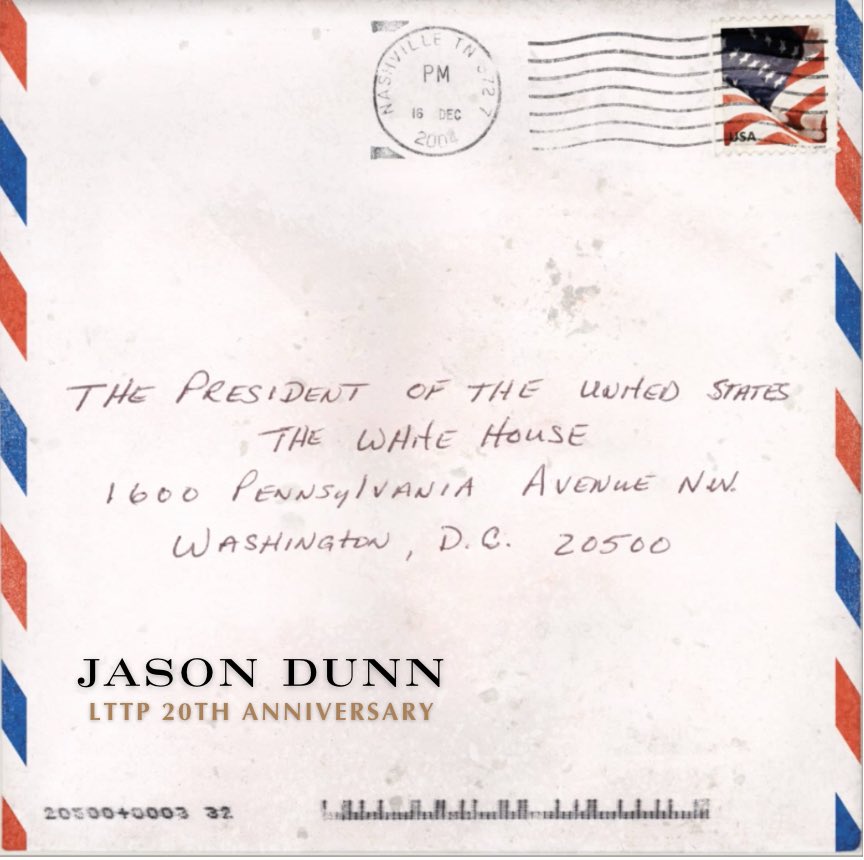 NASHVILLE TN 372 7
PM
16 DEC
2004
USA
THE PRESIDENT OF THE UNITED STATES
THE WHITE HOUSE
1600 PENNSYLVANIA AVENUE N.W.
WASHINGTON, D.C. 20500
JASON DUNN
LTTP 20TH ANNIVERSARY
20500+0003 32